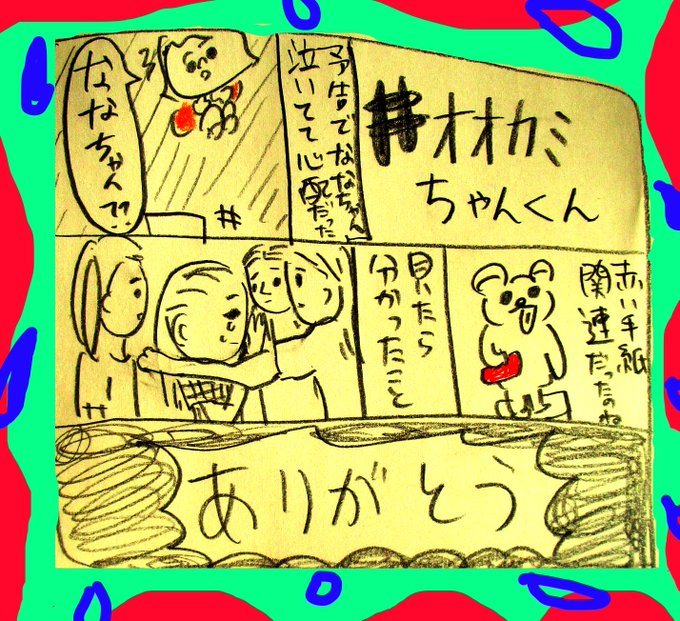 #オオカミ
ちゃんくん
予告でななちゃん
泣いてて心配だった
ななちゃん??
赤い手紙
関連だったのね
見たら
分かったこと
ありがとう